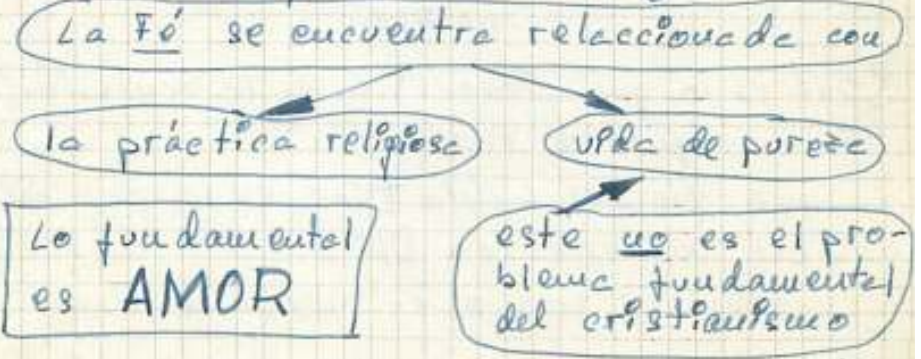 La Fé se encuentra relaccionada con
la práctica religiosa
vida de pureza
Lo fundamental
es AMOR
este no es el pro-
blema fundamental
del cristianismo